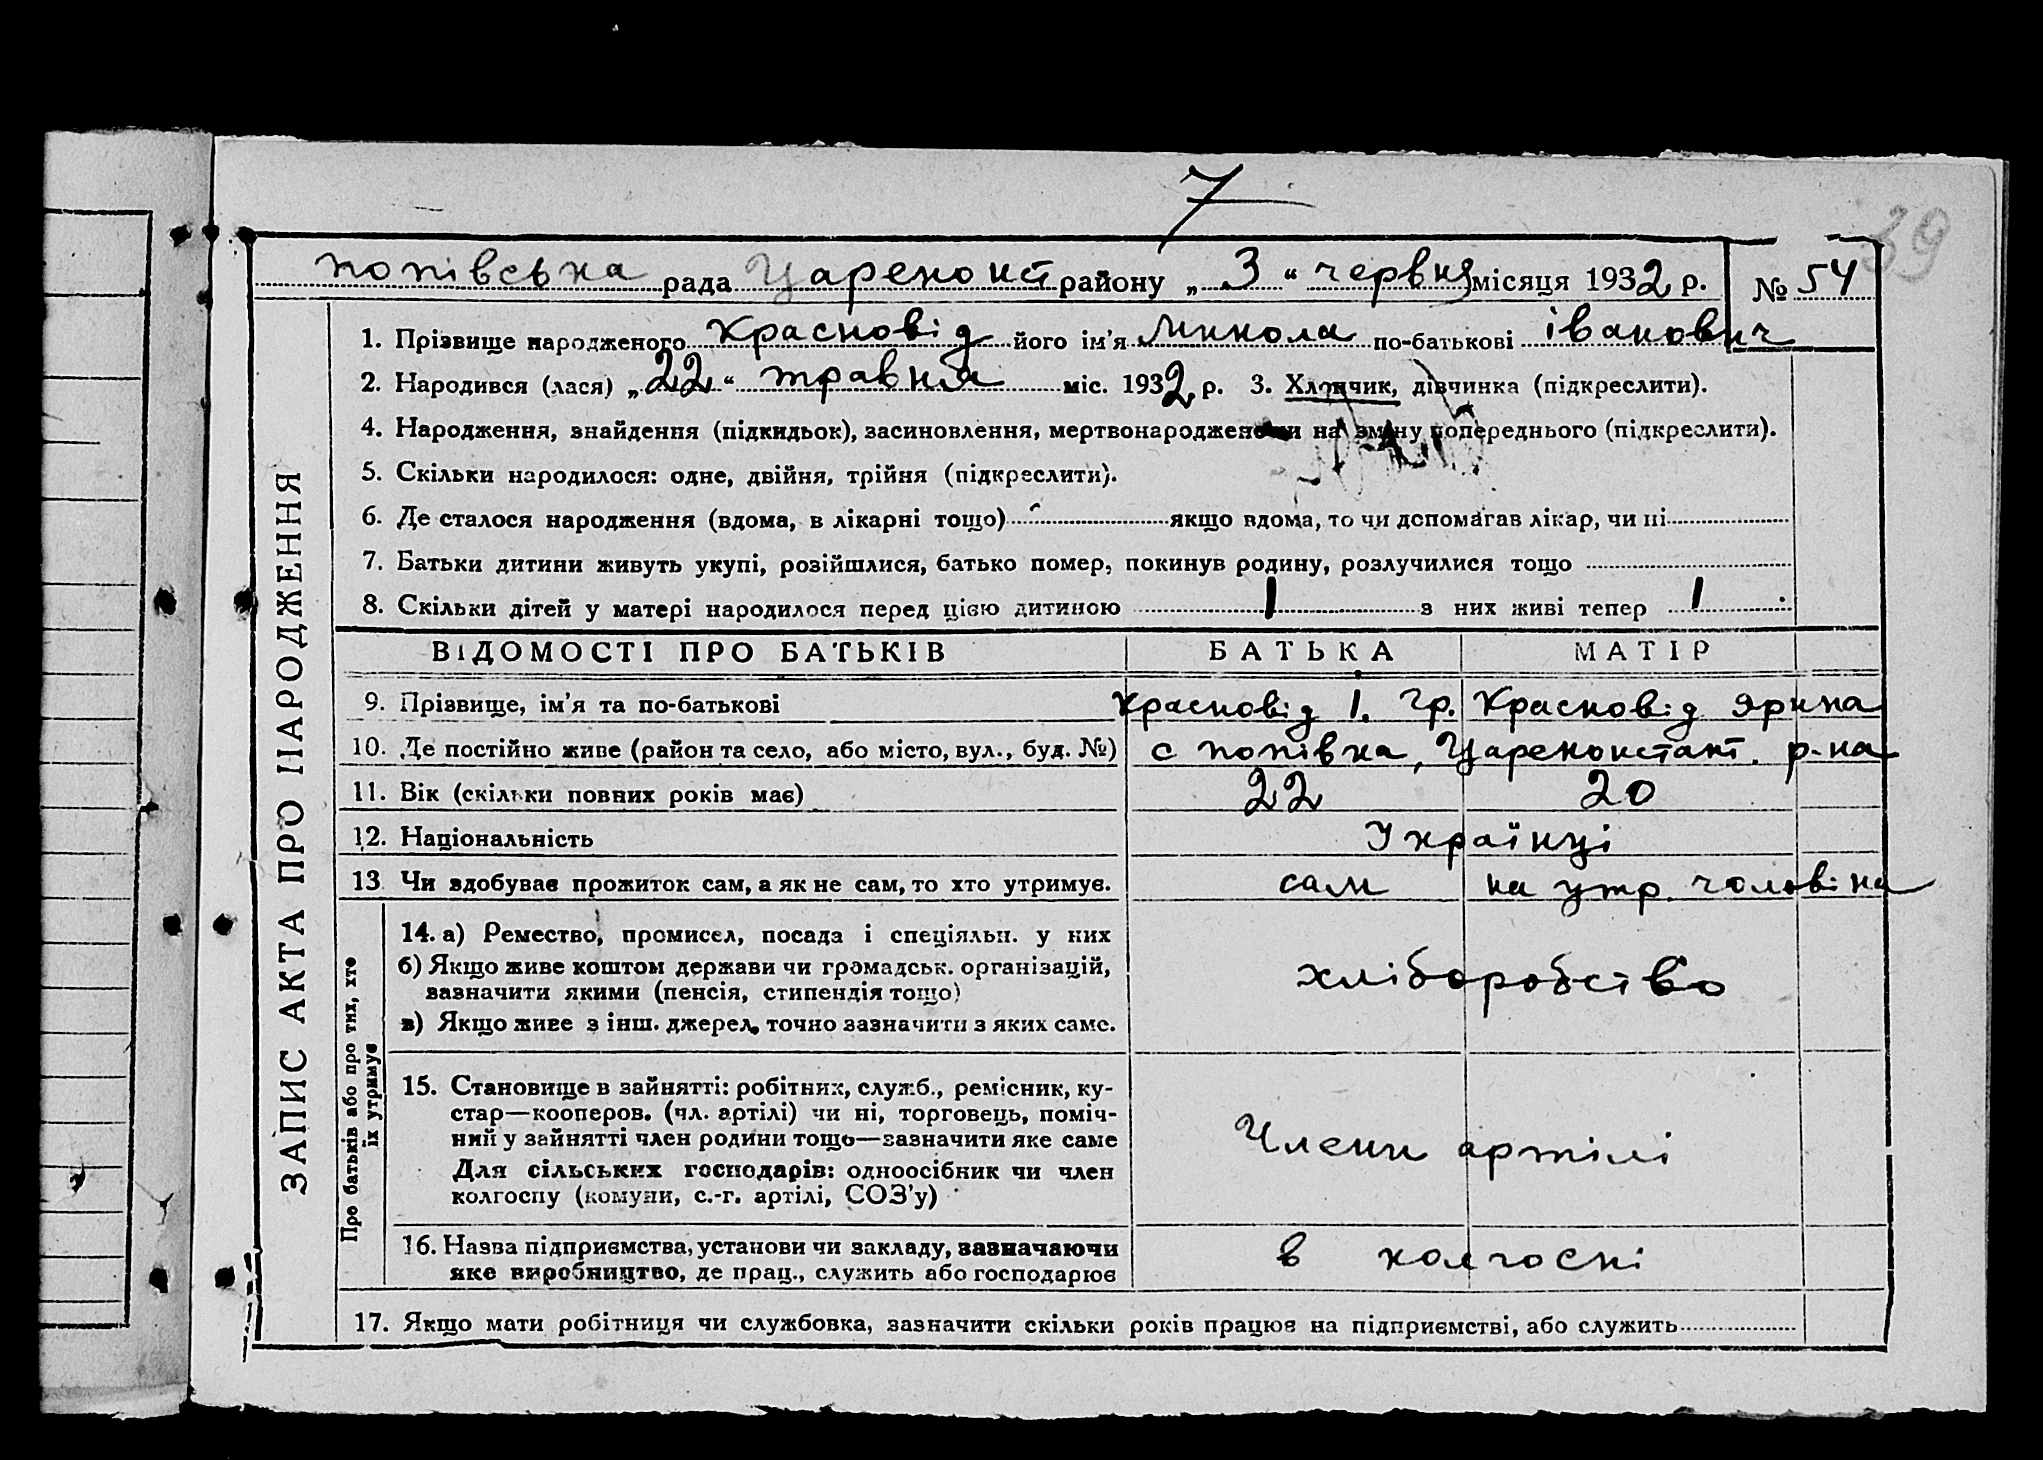 7
39
попівська рада Цареконст району „ 3 “ червня місяця 1932 р. № 54
ЗАПИС АКТА ПРО НАРОДЖЕННЯ
1. Прізвище народженого Красновід його ім’я Микола по-батькові іванович
2. Народився (лася) „ 22 “ травня міс. 1932 р. 3. Хлопчик, дівчинка (підкреслити).
4. Народження, знайдення (підкидьок), засиновлення, мертвонароджен и на зміну попереднього (підкреслити).
5. Скільки народилося: одне, двійня, трійня (підкреслити).
6. Де сталося народження (вдома, в лікарні тощо) якщо вдома, то чи допомагав лікар, чи ні
7. Батьки дитини живуть укупі, розійшлися, батько помер, покинув родину, розлучилися тощо
8. Скільки дітей у матері народилося перед цією дитиною 1 з них живі тепер 1
ВІДОМОСТІ ПРО БАТЬКІВ БАТЬКА МАТІР
9. Прізвище, ім’я та по-батькові Красновід І. Гр. Красновід Ярина
10. Де постійно живе (район та село, або місто, вул., буд. №) с попівка, Цареконстант. р-на
11. Вік (скільки повних років має) 22 20
12. Національність Українці
13 Чи здобуває прожиток сам, а як не сам, то хто утримує. сам на утр. чоловіка
Про батьків або про тих, хто
їх утримує
14. а) Ремество, промисел, посада і спеціяльн. у них
б) Якщо живе коштом держави чи громадськ. організацій,
зазначити якими (пенсія, стипендія тощо)
хліборобство
в) Якщо живе з інш. джерел, точно зазначити з яких саме.
15. Становище в зайнятті: робітник, служб., ремісник, ку-
стар—кооперов. (чл. артілі) чи ні, торговець, поміч-
ний у зайнятті член родини тощо—зазначити яке саме
Члени артілі
Для сільських господарів: одноосібник чи член
колгоспу (комуни, с.-г. артілі, СОЗ’у)
16. Назва підприємства, установи чи закладу, зазначаючи
яке виробництво, де прац., служить або господарює
в колгоспі
17. Якщо мати робітниця чи службовка, зазначити скільки років працює на підприємстві, або служить